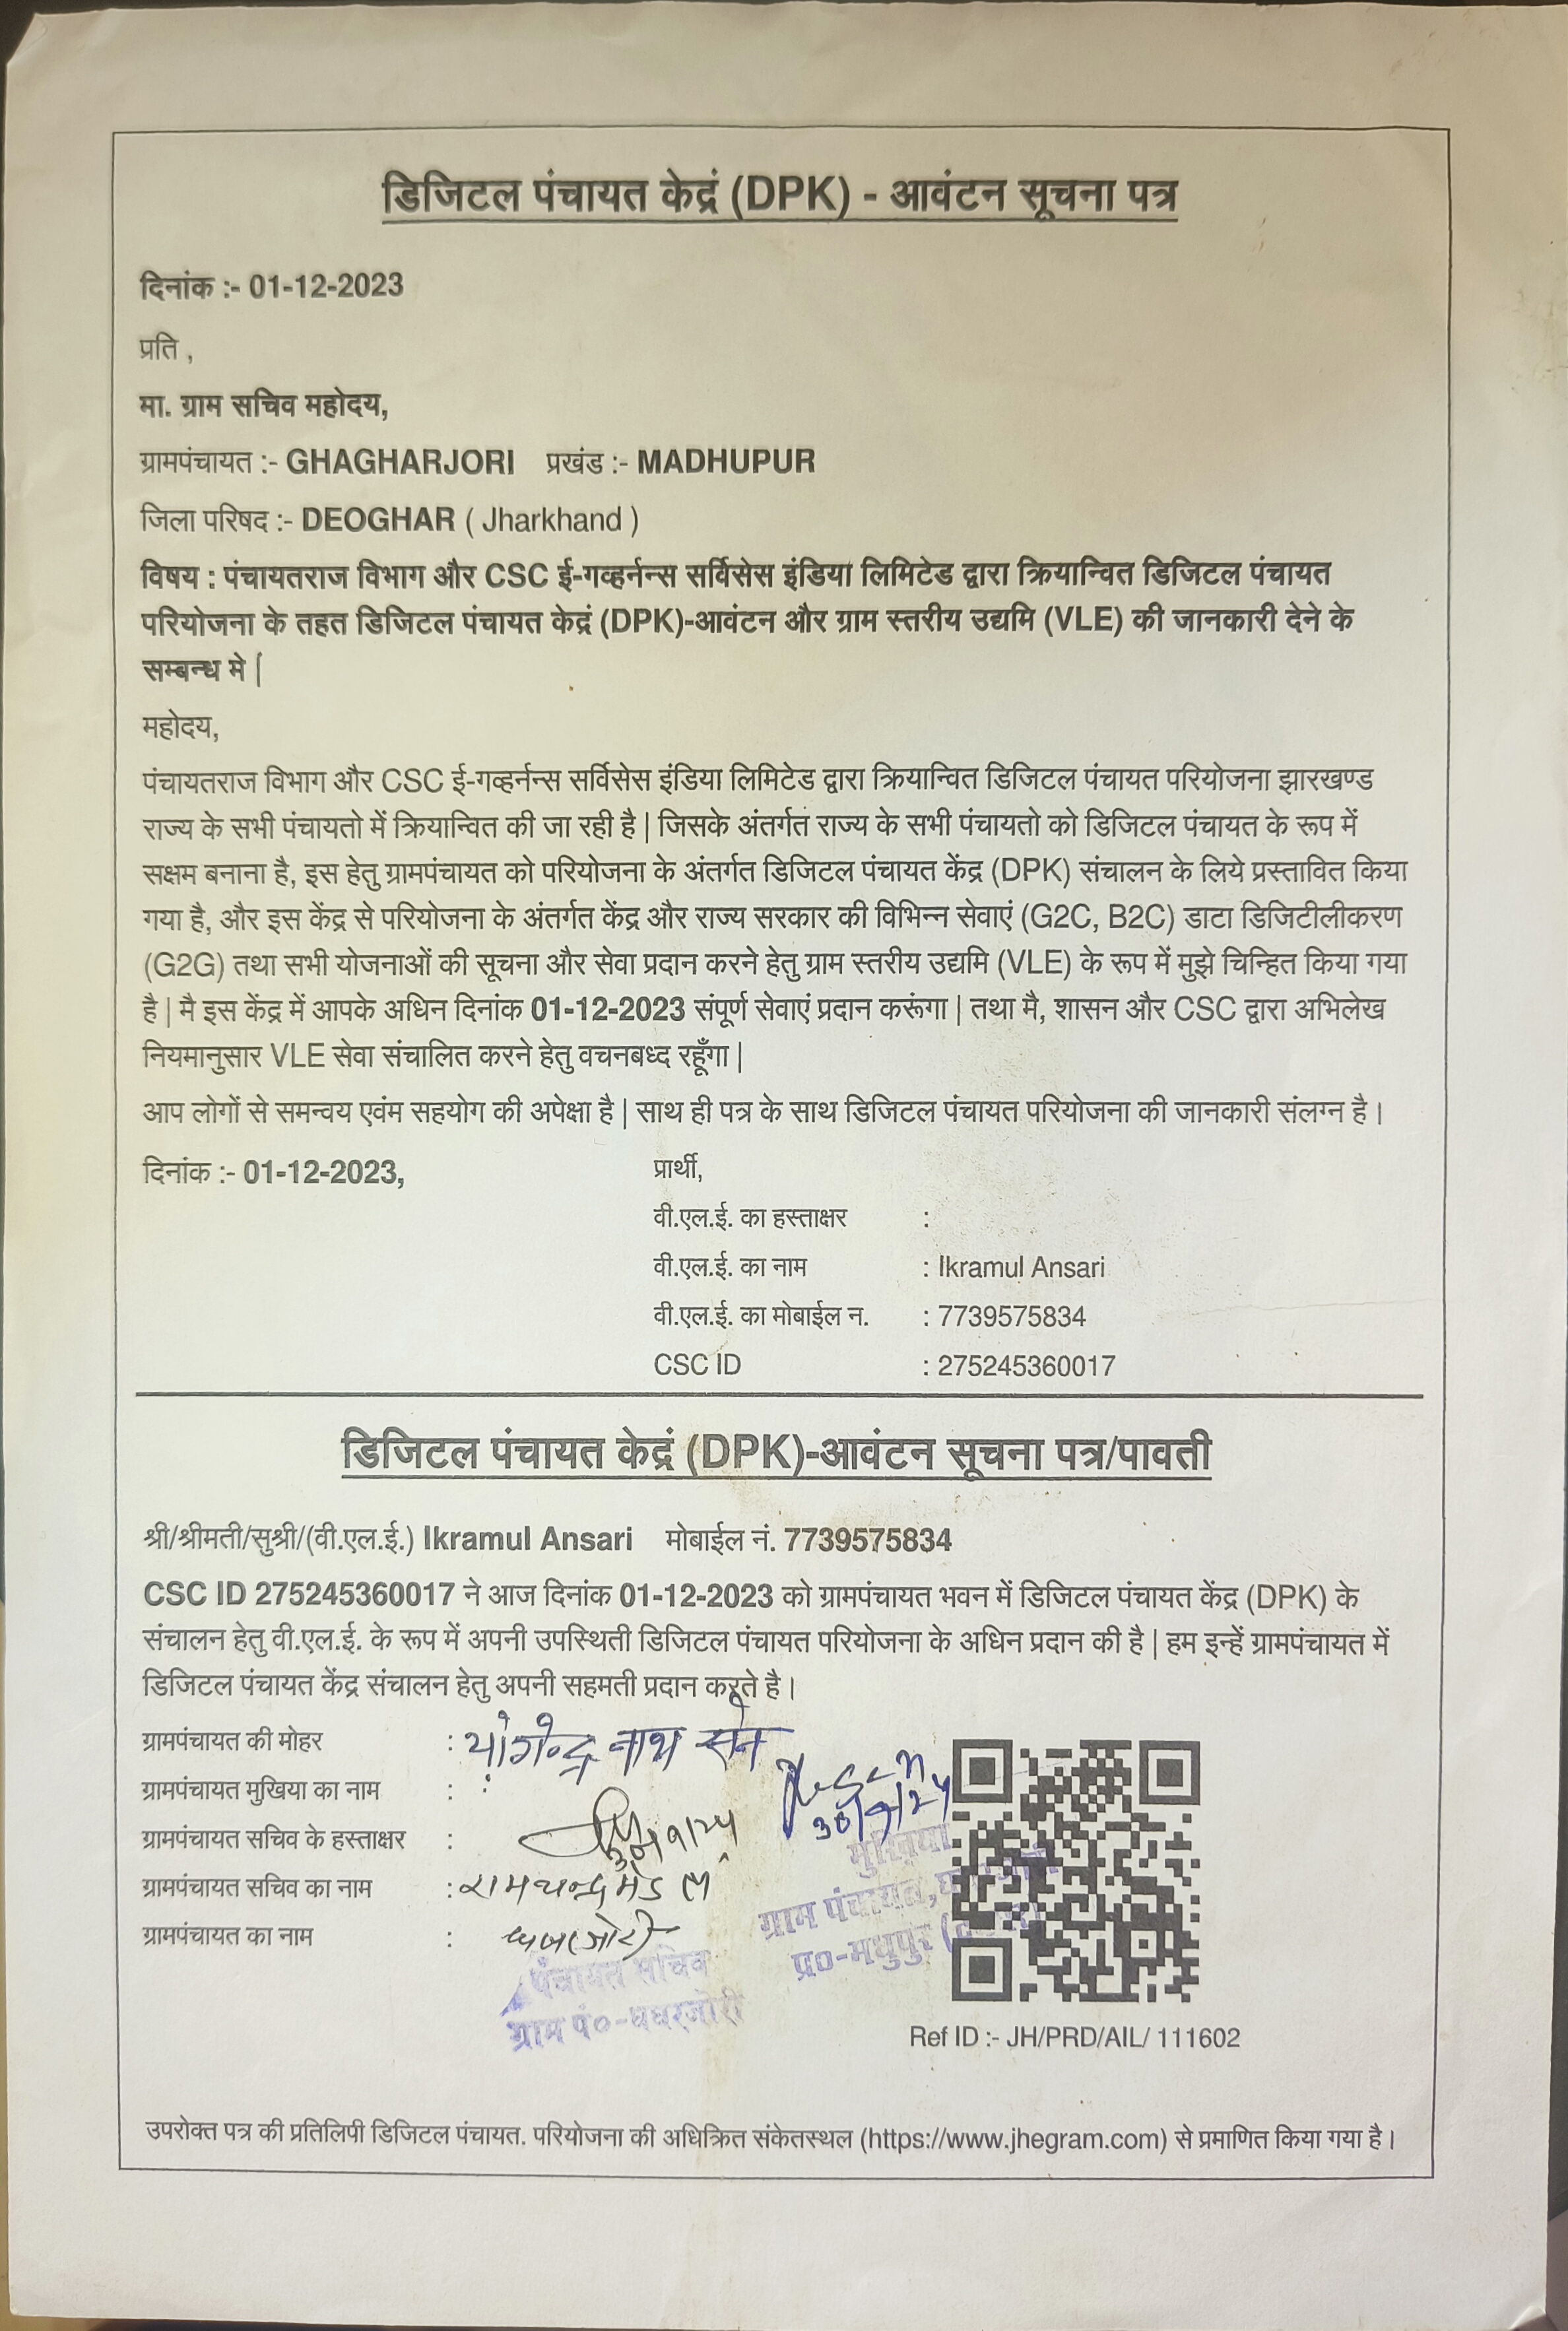 डिजिटल पंचायत केद्रं (DPK) - आवंटन सूचना पत्र
दिनांक :- 01-12-2023
प्रति ,
मा. ग्राम सचिव महोदय,
ग्रामपंचायत :- GHAGHARJORI प्रखंड :- MADHUPUR
जिला परिषद :- DEOGHAR ( Jharkhand )
विषय : पंचायतराज विभाग और CSC ई-गव्हर्नन्स सर्विसेस इंडिया लिमिटेड द्वारा क्रियान्वित डिजिटल पंचायत
परियोजना के तहत डिजिटल पंचायत केद्रं (DPK)-आवंटन और ग्राम स्तरीय उद्यमि (VLE) की जानकारी देने के
सम्बन्ध मे |
महोदय,
पंचायतराज विभाग और CSC ई-गव्हर्नन्स सर्विसेस इंडिया लिमिटेड द्वारा क्रियान्वित डिजिटल पंचायत परियोजना झारखण्ड
राज्य के सभी पंचायतो में क्रियान्वित की जा रही है | जिसके अंतर्गत राज्य के सभी पंचायतो को डिजिटल पंचायत के रूप में
सक्षम बनाना है, इस हेतु ग्रामपंचायत को परियोजना के अंतर्गत डिजिटल पंचायत केंद्र (DPK) संचालन के लिये प्रस्तावित किया
गया है, और इस केंद्र से परियोजना के अंतर्गत केंद्र और राज्य सरकार की विभिन्न सेवाएं (G2C, B2C) डाटा डिजिटीलीकरण
(G2G) तथा सभी योजनाओं की सूचना और सेवा प्रदान करने हेतु ग्राम स्तरीय उद्यमि (VLE) के रूप में मुझे चिन्हित किया गया
है | मै इस केंद्र में आपके अधिन दिनांक 01-12-2023 संपूर्ण सेवाएं प्रदान करूंगा | तथा मै, शासन और CSC द्वारा अभिलेख
नियमानुसार VLE सेवा संचालित करने हेतु वचनबध्द रहूँगा |
आप लोगों से समन्वय एवंम सहयोग की अपेक्षा है | साथ ही पत्र के साथ डिजिटल पंचायत परियोजना की जानकारी संलग्न है ।
दिनांक :- 01-12-2023, प्रार्थी,
वी.एल.ई. का हस्ताक्षर :
वी.एल.ई. का नाम : Ikramul Ansari
वी.एल.ई. का मोबाईल न. : 7739575834
CSC ID : 275245360017
डिजिटल पंचायत केद्रं (DPK)-आवंटन सूचना पत्र/पावती
श्री/श्रीमती/सुश्री/(वी.एल.ई.) Ikramul Ansari मोबाईल नं. 7739575834
CSC ID 275245360017 ने आज दिनांक 01-12-2023 को ग्रामपंचायत भवन में डिजिटल पंचायत केंद्र (DPK) के
संचालन हेतु वी.एल.ई. के रूप में अपनी उपस्थिती डिजिटल पंचायत परियोजना के अधिन प्रदान की है | हम इन्हें ग्रामपंचायत में
डिजिटल पंचायत केंद्र संचालन हेतु अपनी सहमती प्रदान करते है ।
ग्रामपंचायत की मोहर : योगेन्द्र नाथ सेन
ग्रामपंचायत मुखिया का नाम :
ग्रामपंचायत सचिव के हस्ताक्षर :
ग्रामपंचायत सचिव का नाम : रामचन्द्र मंडल
ग्रामपंचायत का नाम :
मुखिया
ग्राम पंचायत,
प्र०-मधुपुर
पंचायत सचिव
ग्राम पं०-घघरजोरी
Ref ID :- JH/PRD/AIL/ 111602
उपरोक्त पत्र की प्रतिलिपी डिजिटल पंचायत. परियोजना की अधिक्रित संकेतस्थल (https://www.jhegram.com) से प्रमाणित किया गया है ।